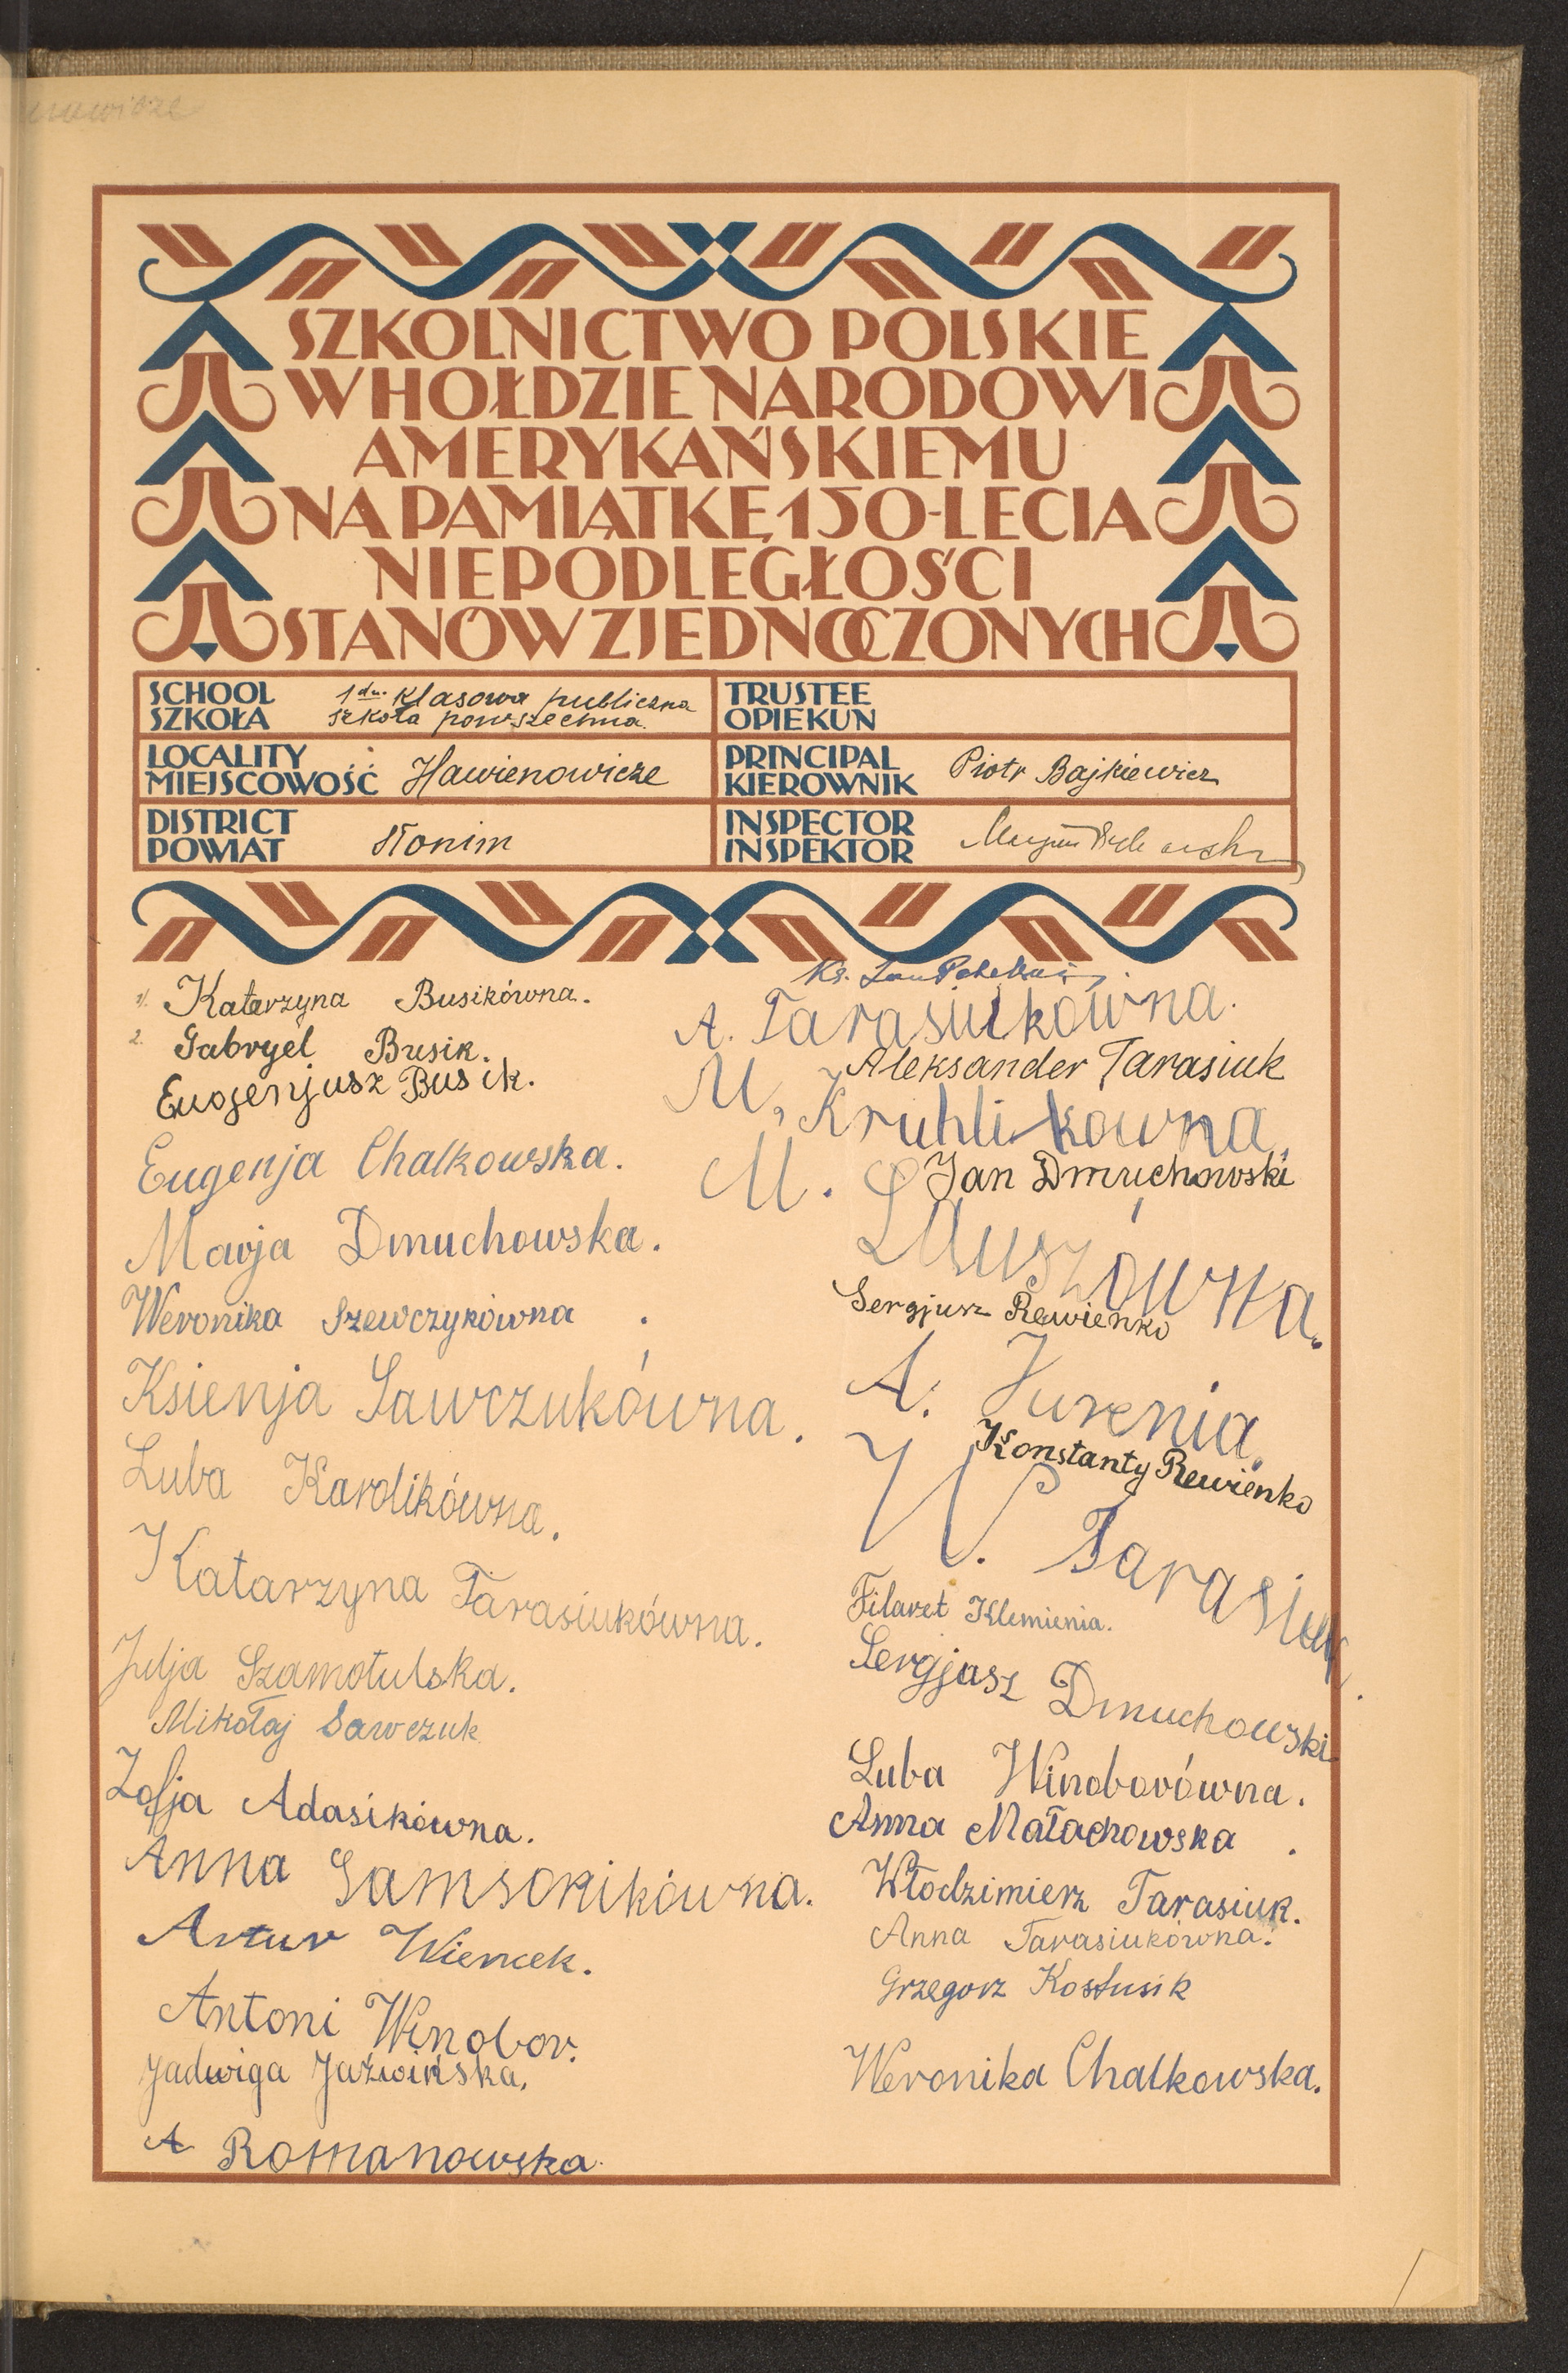 SZKOLNICTWO POLSKIE
W HOŁDZIE NARODOWI
AMERYKAŃSKIEMU
NA PAMIĄTKĘ 150-LECIA
NIEPODLEGŁOŚCI
STANÓW ZJEDNOCZONYCH
SCHOOL
SZKOŁA
1 dw. klasowa publiczna
szkoła powszechna.
TRUSTEE
OPIEKUN
LOCALITY
MIEJSCOWOŚĆ
Hawienowicze
PRINCIPAL
KIEROWNIK
Piotr Bajkiewicz
DISTRICT
POWIAT
Słonim
INSPECTOR
INSPEKTOR
1). Katarzyna Busikówna.
2. Gabryel Busik.
Euogenjusz Busik.
Eugenja Chalkowska.
Marja Dmuchowska.
Weronika Szewczykówna.
Ksienja Sawczukówna.
Luba Kardikówna.
Katarzyna Tarasiukówna.
Julja Szamotulska.
Mikołaj Sawczuk
Zofja Adasikówna.
Anna Samsonikówna.
Artur Wiencek.
Antoni Winobor.
Jadwiga Jaźwińska.
A Romanowska.
Ks. Jan
A. Tarasiukówna.
Aleksander Tarasiuk
M. Kruhlikowna.
Jan Dmuchowski
M.
Sergjusz Rewienko
A. Jurenia.
Konstanty Rewienko
W. Tarasiuk.
Filaret Klemienia.
Sergjasz Dmuchowski
Luba Winoborówna.
Anna Małachowska.
Włodzimierz Tarasiuk.
Anna Tarasiukówna.
Grzegorz Kostusik
Weronika Chalkowska.